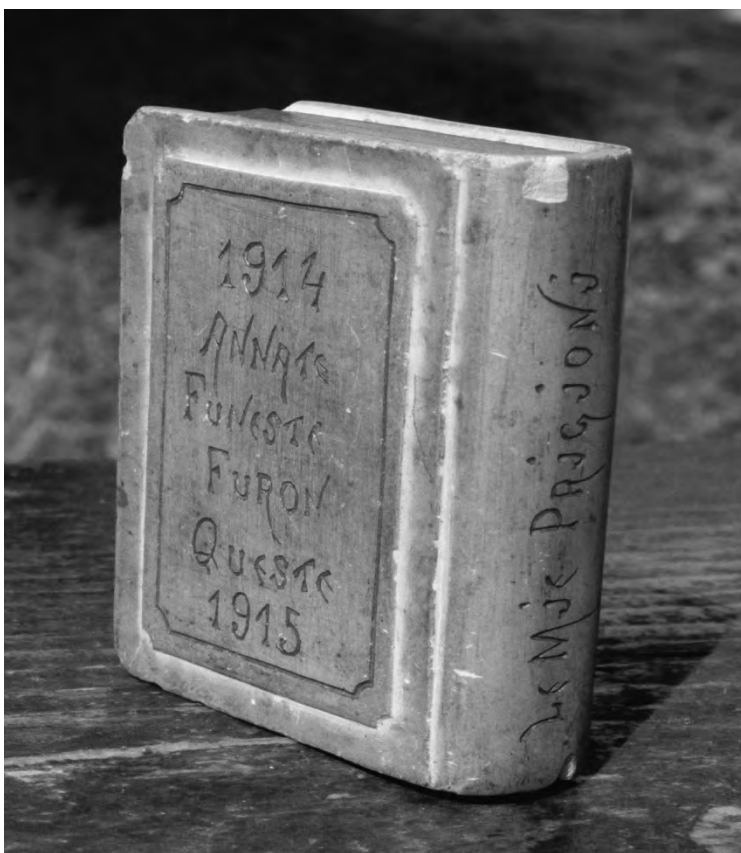 1914
ANNATE
FUNESTE
FURON
QUESTE
1915
LE MIE PRIGIONI